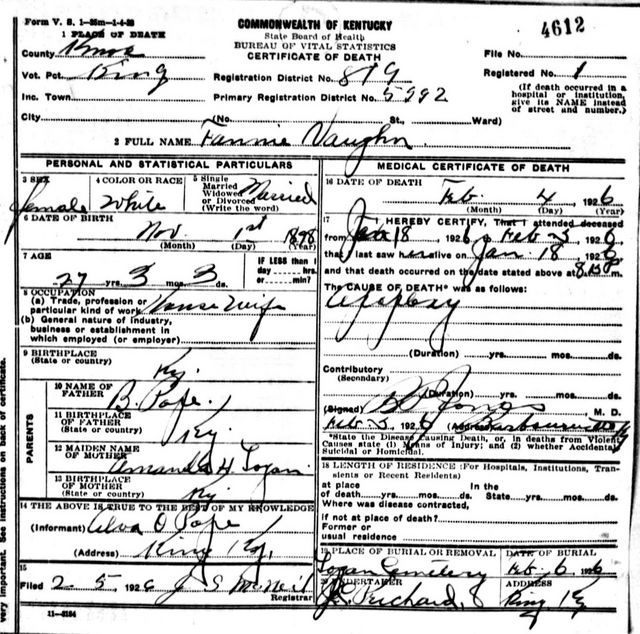 Form V. S. 1—25m—1-4-26
COMMONWEALTH OF KENTUCKY
4612
1 PLACE OF DEATH
State Board of Health
BUREAU OF VITAL STATISTICS
CERTIFICATE OF DEATH
County Knox
File No.
Vot. Pct. King
Registration District No. 819
Registered No. 1
Inc. Town
Primary Registration District No. 5992
(If death occurred in a hospital or institution, give its NAME instead of street and number.)
City (No. St., Ward)
2 FULL NAME Fannie Vaughn
PERSONAL AND STATISTICAL PARTICULARS
3 SEX female
4 COLOR OR RACE White
5 Single Married Widowed or Divorced (Write the word) Married
6 DATE OF BIRTH
Nov. 1st 1898
(Month) (Day) (Year)
7 AGE
27 yrs. 3 mos. 3 ds.
IF LESS than 1 day hrs. or min.?
8 OCCUPATION
(a) Trade, profession or particular kind of work House Wife
(b) General nature of industry, business or establishment in which employed (or employer)
9 BIRTHPLACE
(State or country) Ky.
PARENTS
10 NAME OF FATHER B. Pope.
11 BIRTHPLACE OF FATHER
(State or country) Ky.
12 MAIDEN NAME OF MOTHER Amanda H. Logan
13 BIRTHPLACE OF MOTHER
(State or country) Ky
14 THE ABOVE IS TRUE TO THE BEST OF MY KNOWLEDGE
(Informant) Alva O Pope
(Address) King Ky.
15
Filed 2 5, 1926 J S McNeil
Registrar
11—3184
MEDICAL CERTIFICATE OF DEATH
16 DATE OF DEATH Feb. 4, 1926
(Month) (Day) (Year)
17 I HEREBY CERTIFY, That I attended deceased
from Jan 18, 1926, to Feb 3, 1926,
that I last saw h alive on Jan. 18, 1926
and that death occurred on the date stated above at m.
The CAUSE OF DEATH* was as follows:
(Duration) yrs. mos. ds.
Contributory
(Secondary)
(Duration) yrs. mos. ds.
(Signed) Jones, M. D.
Feb. 5, 1926 (Address) Barbourville Ky
*State the Disease Causing Death, or, in deaths from Violent Causes state (1) Means of Injury; and (2) whether Accidental, Suicidal or Homicidal.
18 LENGTH OF RESIDENCE (For Hospitals, Institutions, Transients or Recent Residents)
at place of death yrs. mos. ds. In the State yrs. mos. ds.
Where was disease contracted,
if not at place of death?
Former or usual residence
19 PLACE OF BURIAL OR REMOVAL
Logan Cemetery
DATE OF BURIAL
Feb. 6, 1926
20 UNDERTAKER
Prichard
ADDRESS
King Ky
very important. See instructions on back of certificate.